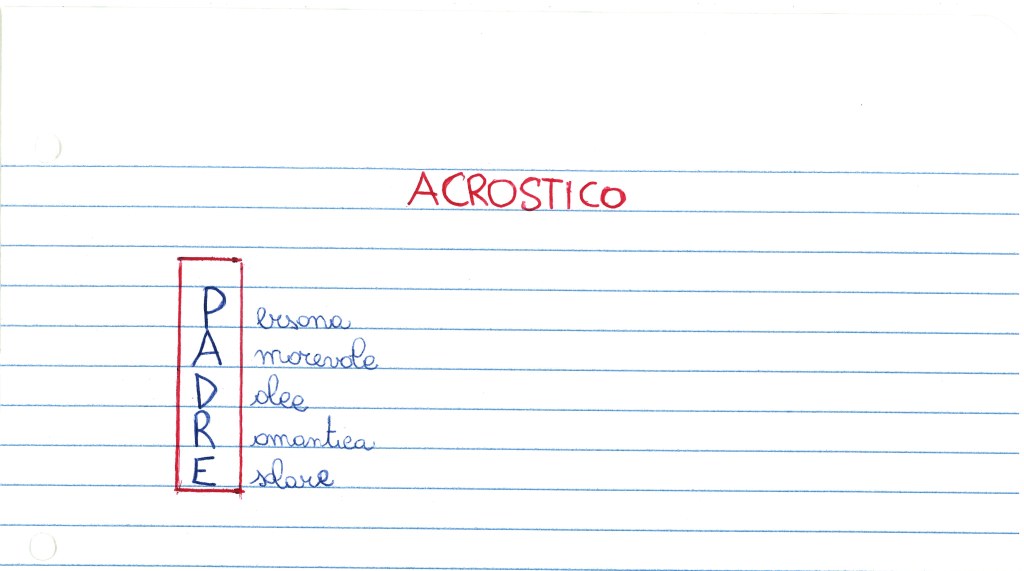 ACROSTICO
P ersona
A morevole
D olce
R omantica
E solare